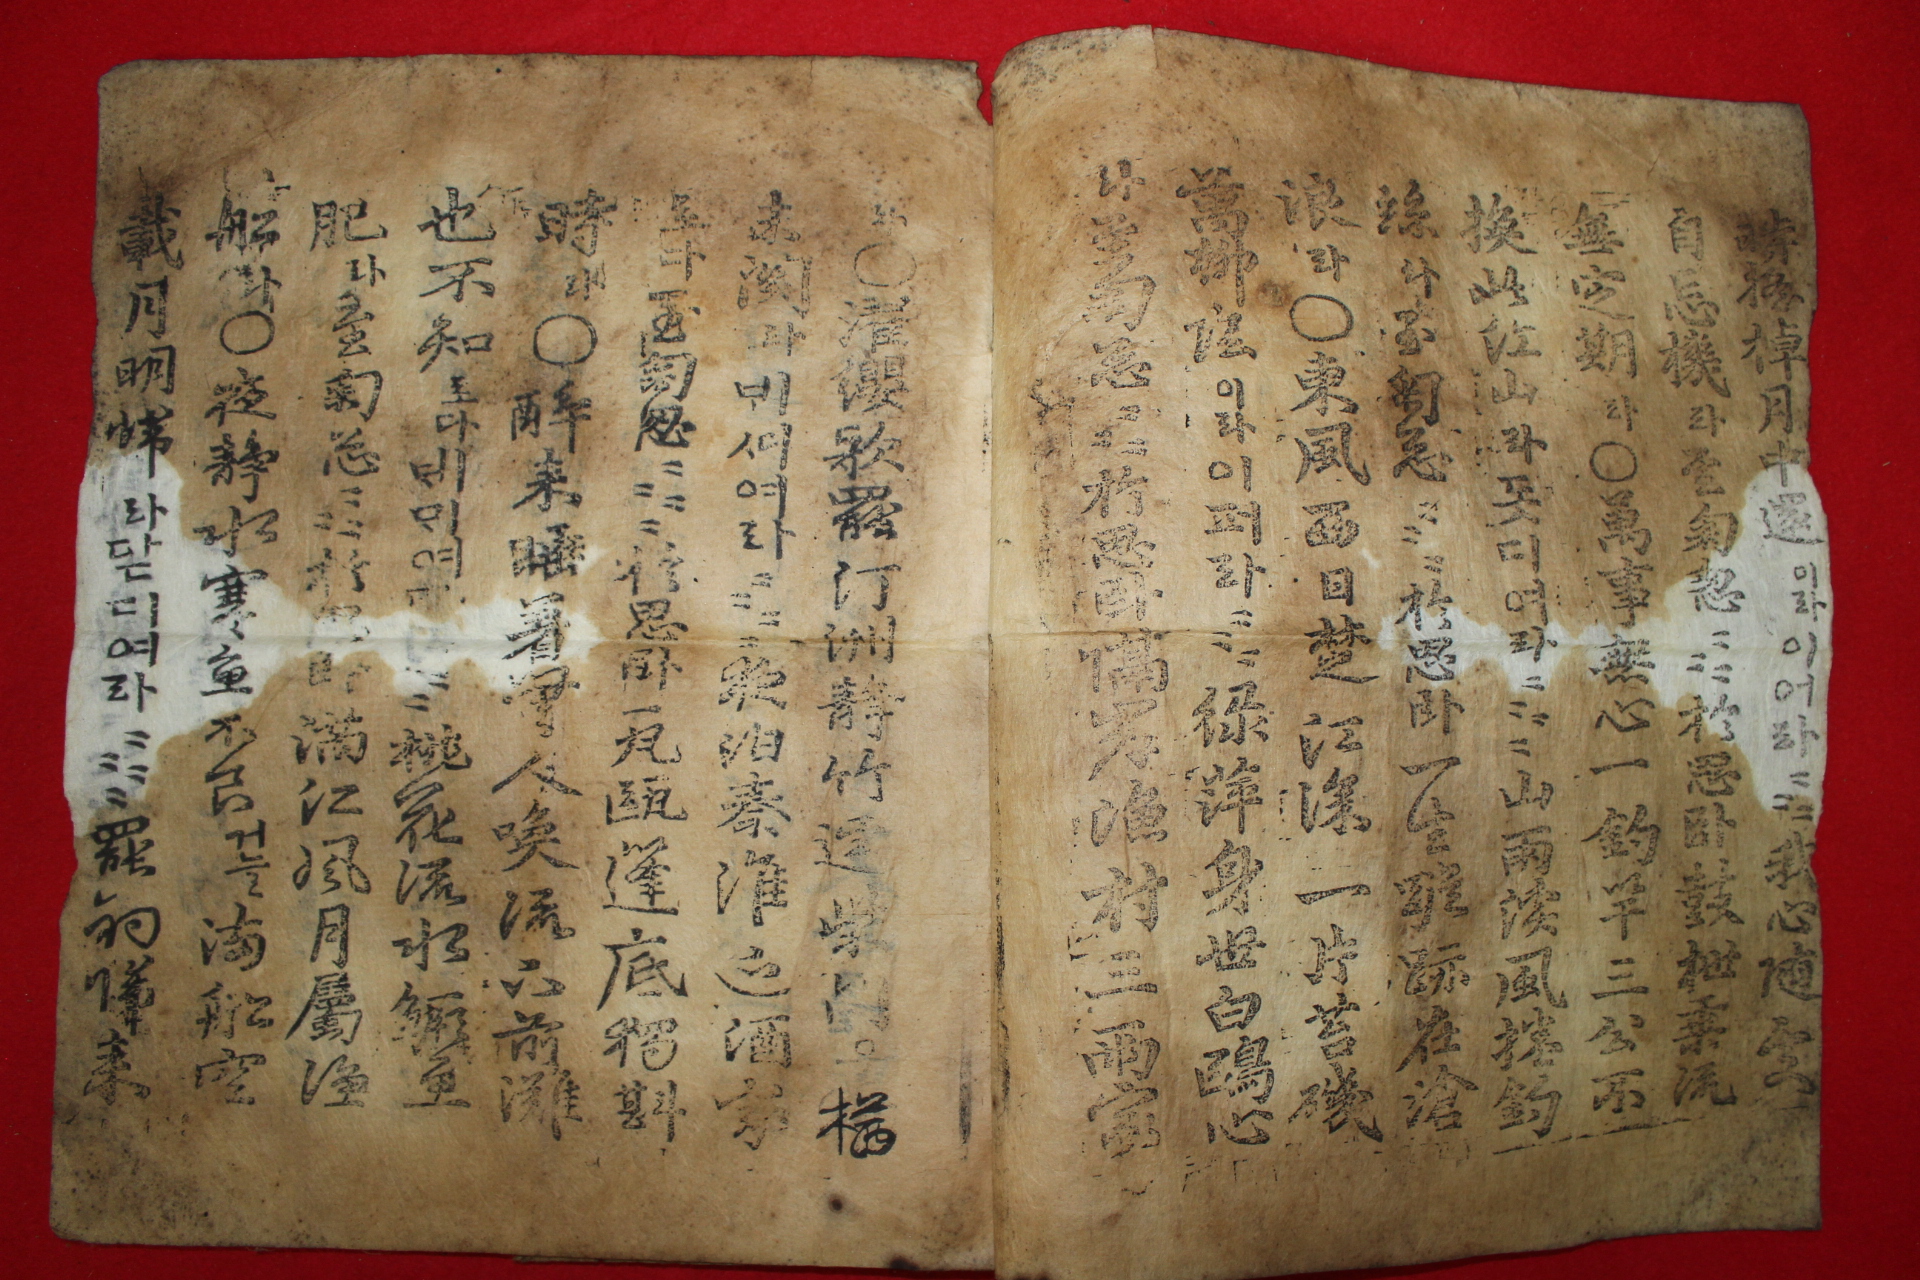 棹月中還이라이어라〻〻我心隨
自忘機라至匊忩〻〻於思臥鼓枻乘流
無定期라〇萬事無心一釣竿三公不
換此江山라돗디여라〻〻山雨溪風捲釣
絲라至匊忩〻〻於思臥一生蹤跡在滄
浪라〇東風西日楚江深一片苔磯
萬柳陰이라이퍼라〻〻綠萍身世白鷗心
라至匊忩〻〻於思臥隔岸漁村三兩家
라〇濯纓歌罷汀洲靜竹逕柴門오猶
未關라비셔여라〻〻夜泊秦淮近酒家
로다至匊忩〻〻於思臥瓦甌蓬底獨斟
時라〇醉來睡着無人喚流下前灘
也不知로다비미여라〻〻桃花流水鱖魚
肥라至匊忩〻〻於思臥滿江風月屬漁
船라〇夜靜水寒魚不食거늘滿船空
載月明歸라닫디여라〻〻罷釣歸來